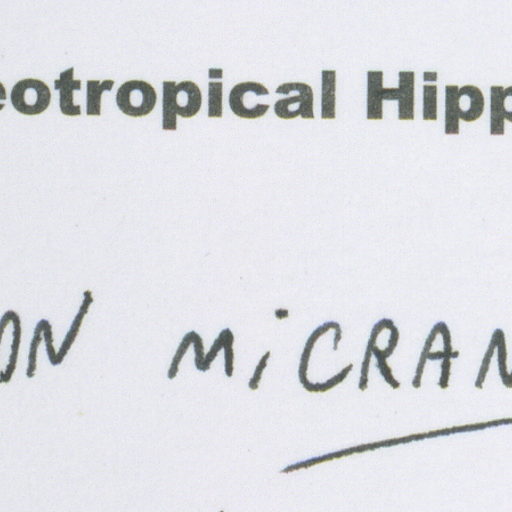 eotropical Hipp
ON MiCRAN